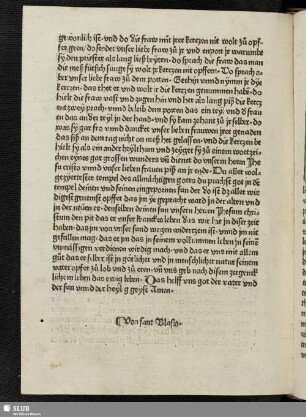 gewonlich ist· vnd do die fraw mit jrer kertzen nit wolt zů opf-
fer geen· do sendet vnser liebe fraw zů jr vnd enpot jr warumbe
sy den priester als lang ließ beyten· do sprach die fraw das man
die meß fürsich sunge sy wolt jr kertzen nit opffern· Do sprach a-
ber vnser liebe fraw zů dem potten· Geehin vnd nymm jr dye
kertzen· das thet er vnd wolt jr die kertzen genummen habn· do
hielt die fraw vast vnd zugen hin vnd her als lang piß die kertz
entzwey prach· vnnd je bleib dem potten das ein teyl· vnd d' frawen
das ander teyl in der hand· vnd sy kam zehant zů jr selber· do
was sy gar fro vnd dancket vnser lieben frawen jrer genaden
das sy an dem tag nicht on meß het gelassen· vnd die kertzen be-
hielt sy als ein ander heyltum vnd zeyget sy zů einem wortzei-
chen eynes gar grossen wunders vnd dienet do vnserm herrn Jhe
su cristo vnd vnser lieben frawen piß an jr ende· Du aller wol-
gezyertester tempel des allmächtigen gottes du prachst got jn dē
tempel deinen vnd seinen eingepornen sun der do ist dz aller wir
digest genemst opffer das jm ye gepracht ward in der alten vnd
in der neüen ee· den selben deinen sun vnsern herren Jhesum chri-
stum den pit das er vnser kranckes leben das wir hie in diser zeit
haben· das jm von vnser sund wegen widerzem ist· vnnd jm nit
gefallen mag· das er jm das jn seinem vollkommen leben jn seinē
vnmässigen verdienen wirdig mach· vnd das er vns mit allem
gůt das er selber ist jn götlicher vnd jn menschlicher natur seinem
vater opffer zů lob vnd zů eren· vnd vns geb nach disem zergenck
lichem leben das ewig leben· Das helff vns got der vater vnd
der sun vnnd der heylig geyst Amen·
¶ Von sant Blasio·
SLUB